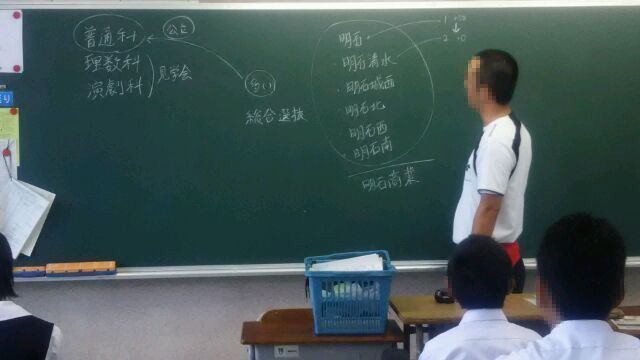 普通科
公立
理数科
演劇科
見学会
総合選抜
明石
明石清水
明石城西
明石北
明石西
明石南
明石商業
1
2